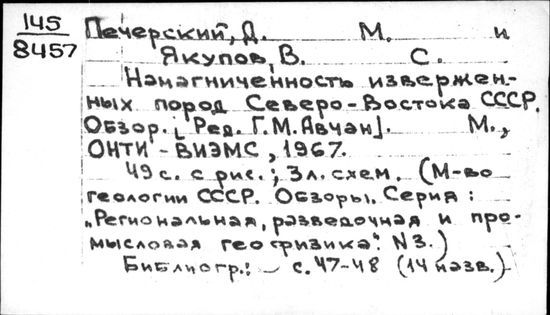 145
8457
Печерский, Д. М. и
Якупов, В. С.
Намагниченность извержен-
ных пород Северо-Востока СССР.
Обзор. [Ред. Г.М. Авчан]. М.,
ОНТИ-ВИЭМС, 1967.
49 с. с рис.; 3 л. схем. (М-во
геологии СССР. Обзоры. Серия:
„Региональная, разведочная и про-
мысловая геофизика". N3.)
Библиогр.: - с. 47-48 (14 назв.)